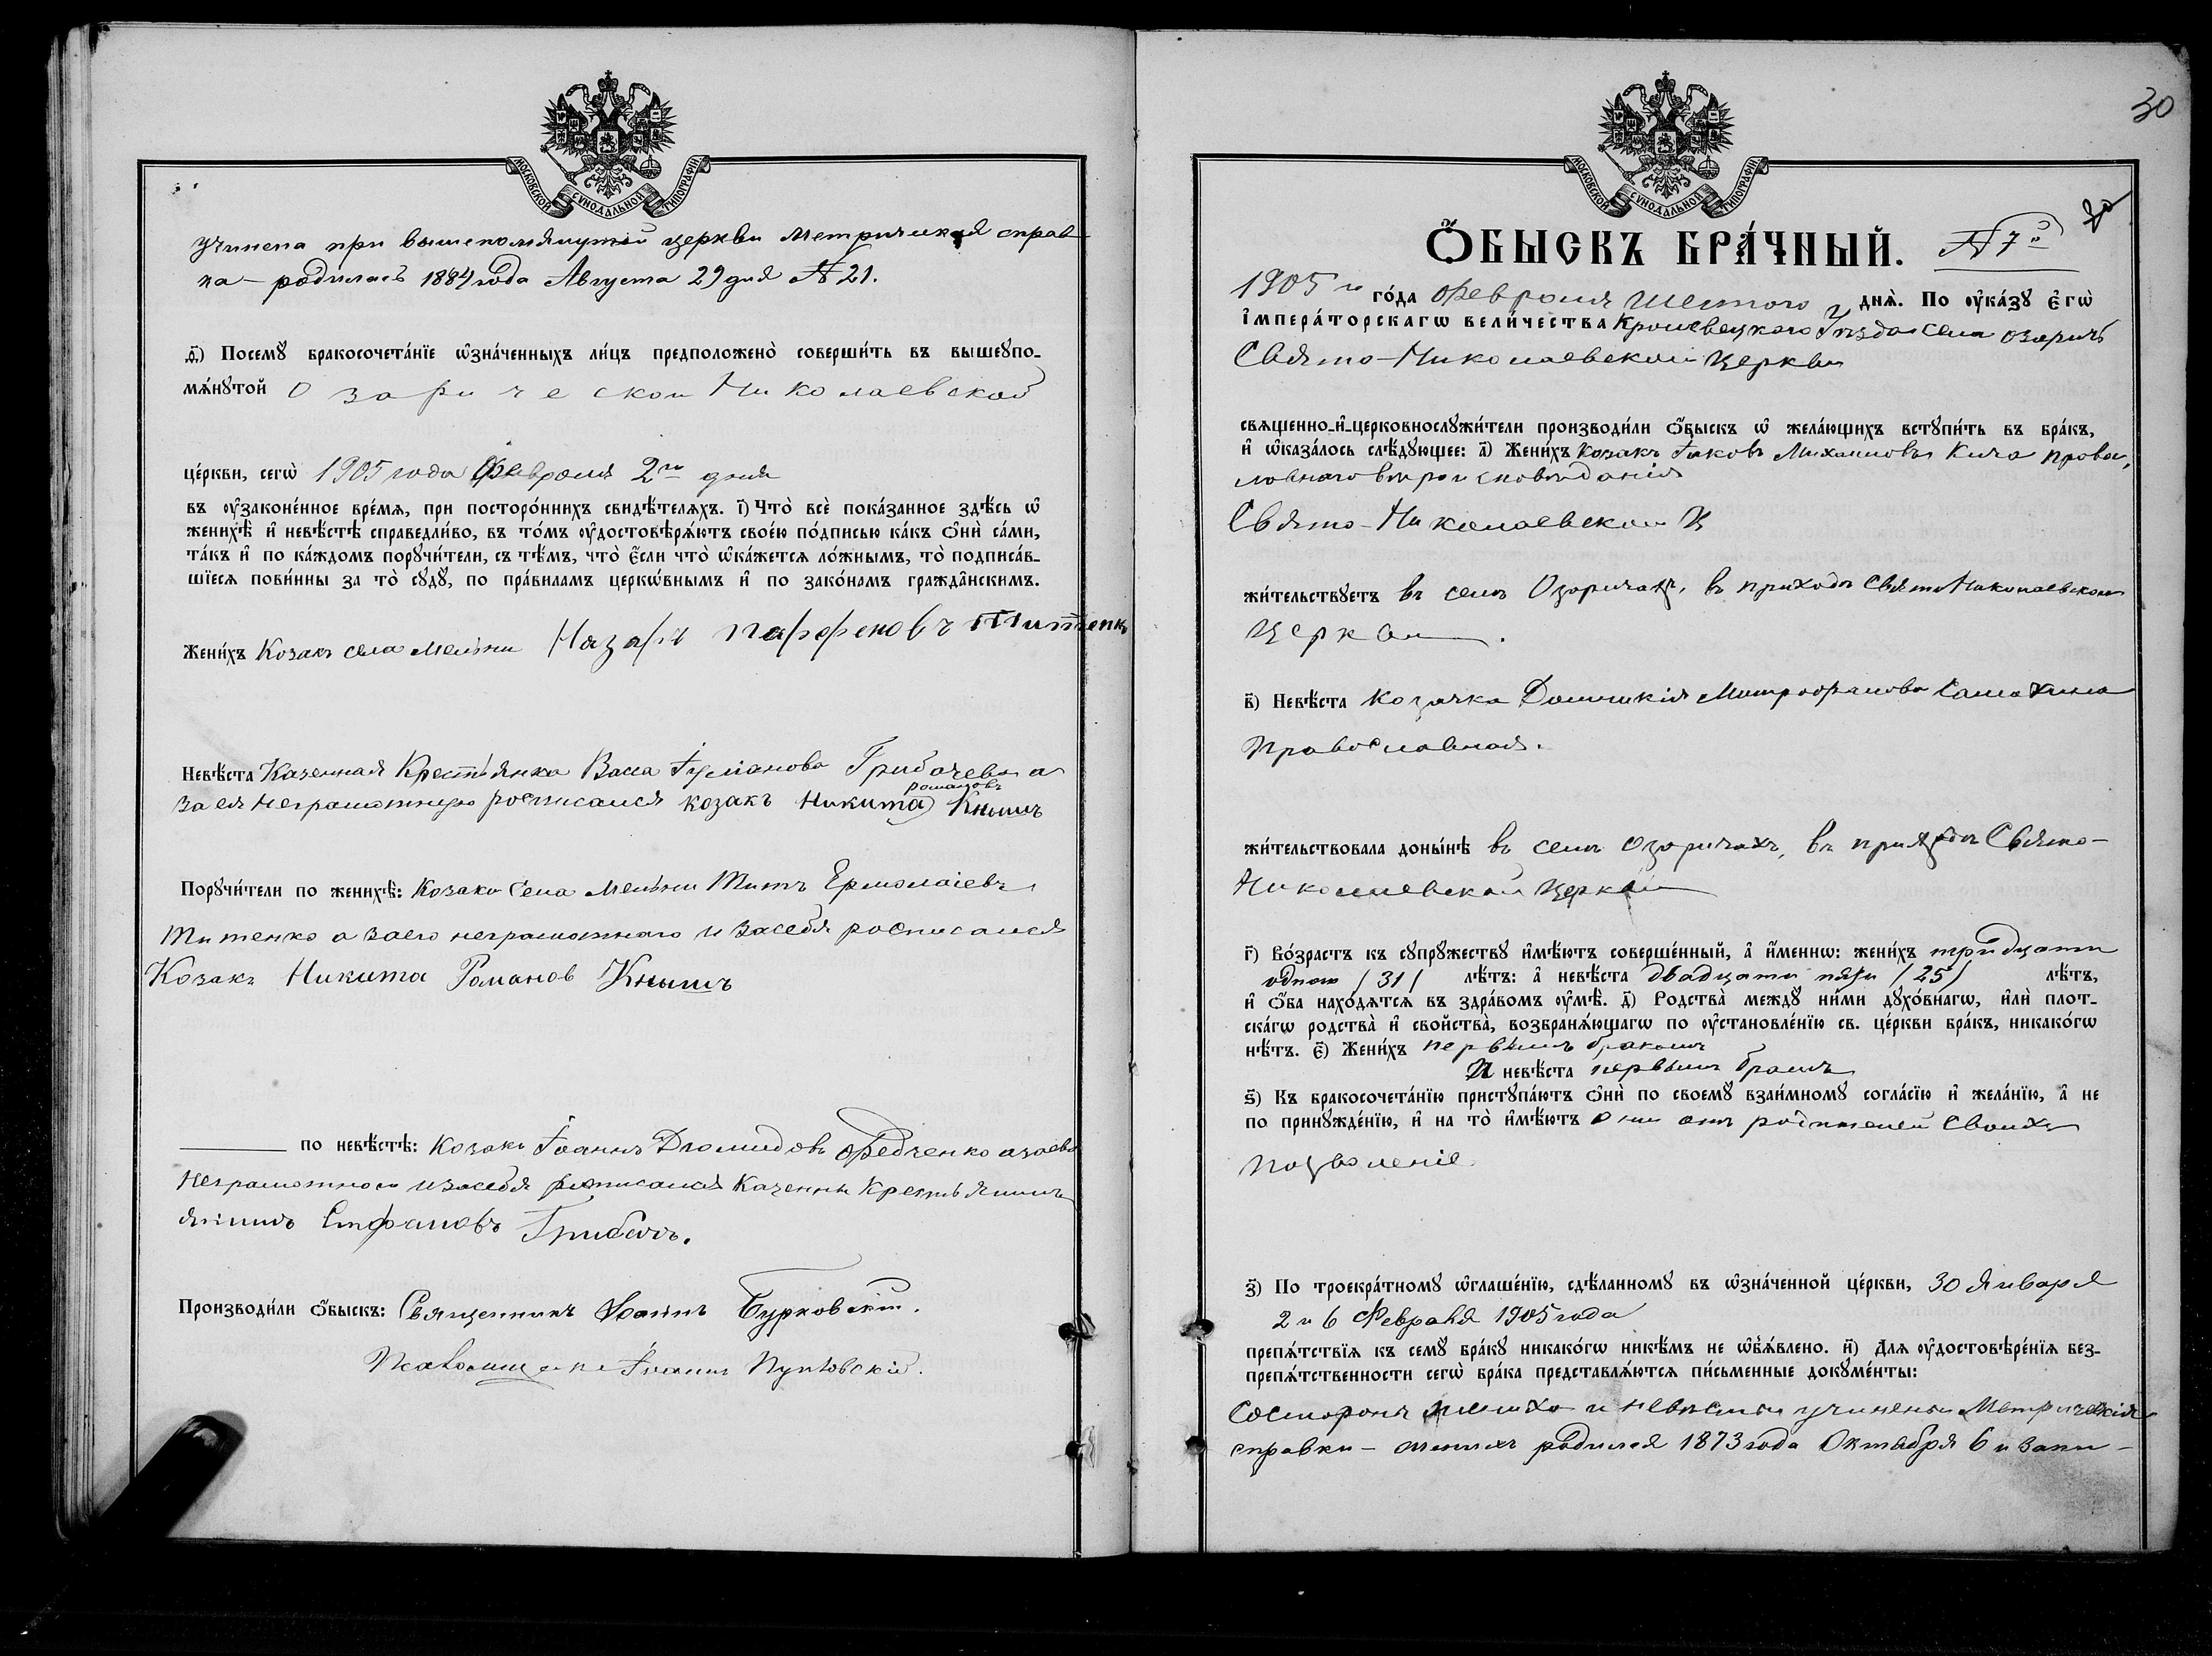 МОСКОВСКОЙ СѴНОДАЛЬНОЙ ТИПОГРАФІИ
учинена при вышепомянутой церкви Метрическая справ
ка – родилась 1884 года Августа 29 дня № 21.
ѳ҃) Посемꙋ бракосочета́нїе ѡ҆зна́ченныхъ ли́цъ предположено̀ соверши́ть въ вышеꙋпо-
мѧ́нꙋтой Озарической Николаевской
це́ркви, сегѡ̀ 1905 года Февраля 2го дня
въ ᲂу҆законе́нное вре́мѧ, при посторо́ннихъ свидѣ́телѧхъ. і҃) Что̀ всѐ пока́занное здѣ́сь ѡ҆
женихѣ̀ и҆ невѣ́стѣ справедли́во, въ то́мъ ᲂу҆достовѣрѧ́ютъ свое́ю по́дписью ка́къ ѻ҆нѝ са́ми,
та́къ и҆ по ка́ждомъ порꙋчи́тели, съ тѣ́мъ, что̀ є҆́сли что̀ ѡ҆ка́жетсѧ ло́жнымъ, то̀ подписа́в-
шїесѧ пови́нны за то̀ сꙋдꙋ̀, по пра́виламъ церкѡ́внымъ и҆ по зако́намъ гражда̂нскимъ.
Жени́хъ Козакъ села Мельни Назаръ Парфеновъ Титенко
Невѣ́ста Казенная Крестьянка Васса Іуліанова Грибачева а
за ея неграмотную росписался козакъ Никита Романовъ Кнышъ
Порꙋчи́тели по женихѣ̀: Козаки села Мельни Титъ Ермолаіевъ
Титенко а за его неграмотнаго и за себя росписался
Козакъ Никита Романов Кнышъ
по невѣ́стѣ: козакъ Іоаннъ Діомидовъ Федченко а за его
неграмотного и за себя росписался Казенны Крестьянинъ
Стефановъ Грибачъ.
Производи́ли ѻ҆́быскъ: Священникъ Іоаннъ Бурковскій.
Псаломщикъ Іоаннъ Пунтовскій.
30
МОСКОВСКОЙ СѴНОДАЛЬНОЙ ТИПОГРАФІИ
Ѻ҆́БЫСКЪ БРА́ЧНЫЙ. № 7й
1905го го́да Февраля Шестого днѧ̀. По ᲂу҆ка́зꙋ є҆гѡ̀
і҆мпера́торскагѡ вели́чества Кролевецкого Уѣзда села Озаричъ
Свято-Николаевской церкви
свѧщенно-и҆-церковнослꙋжи́тели производи́ли ѻ҆́быскъ ѡ҆ жела́ющихъ встꙋпи́ть въ бра́къ,
и҆ ѡ҆каза́лось слѣ́дꙋющее: а҃) Жени́хъ Козакъ Іаковъ Михаиловъ Кича Право
славнаго вѣроисповѣданія
Свято-Николаевской Ц
жи́тельствꙋетъ въ селѣ Озаричахъ, въ приходѣ Свято Николаевской
Церкви.
в҃) Невѣ́ста Козачка Домникія Митрофанова Самохина
Православная.
жи́тельствовала доны́нѣ въ селѣ Озаричахъ, въ приходѣ Свято-
Николаевской Церкви
г҃) Во́зрастъ къ сꙋпрꙋ́жествꙋ и҆мѣ́ютъ соверше́нный, а҆ и҆́меннѡ: жени́хъ тридцати
одного /31/ лѣ́тъ: а҆ невѣ́ста двадцати пяти /25/ лѣ́тъ,
и҆ ѻ҆́ба нахо́дѧтсѧ въ здра́вомъ ᲂу҆мѣ̀. д҃) Родства̀ междꙋ̀ ни́ми дꙋхо́внагѡ, и҆лѝ плот-
ска́гѡ родства̀ и҆ свойства̀, возбранѧ́ющагѡ по ᲂу҆становле́нїю св. це́ркви бра́къ, никако́гѡ
нѣ́тъ. є҃) Жени́хъ первымъ бракомъ
И невѣ́ста первымъ бракомъ
ѕ҃) Къ бракосочета́нїю пристꙋпа́ютъ ѻ҆нѝ по своемꙋ̀ взаи́мномꙋ согла́сїю и҆ жела́нїю, а҆ не
по принꙋжде́нїю, и҆ на то̀ и҆мѣ́ютъ они отъ родителей своихъ
позволеніе
з҃) По троекра́тномꙋ ѡ҆глаше́нїю, сдѣ́ланномꙋ въ ѡ҆зна́ченной це́ркви, 30 Января
2 и 6 Февраля 1905 года
препѧ́тствїѧ къ семꙋ̀ бра́кꙋ никако́гѡ никѣ́мъ не ѡ҆б̾ѧ́влено. и҃) Длѧ ᲂу҆достовѣре́нїѧ без-
препѧ́тственности сегѡ̀ бра́ка представлѧ́ютсѧ пи́сьменные докꙋме́нты:
Со стороны жениха и невѣсты учинены Метрическія
справки – женихъ родился 1873 года Октября 6 и запи-